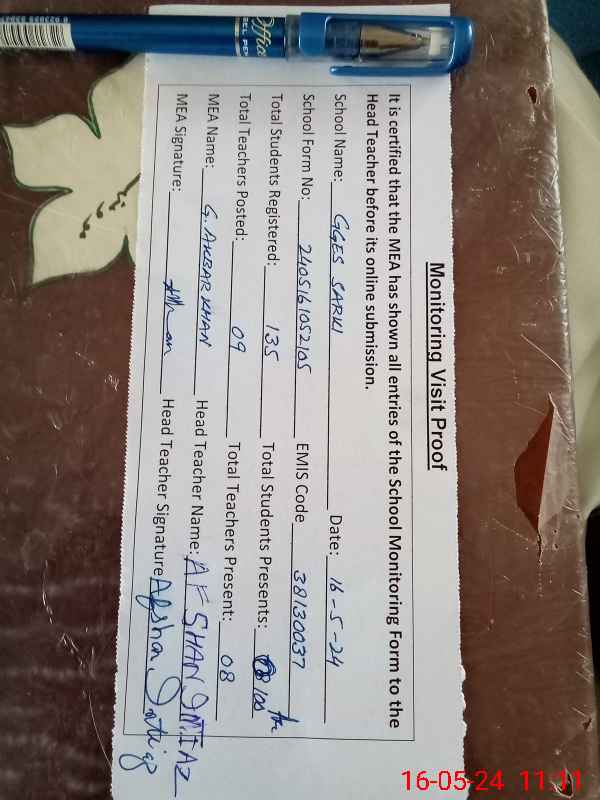 Monitoring Visit Proof
It is certified that the MEA has shown all entries of the School Monitoring Form to the
Head Teacher before its online submission.
School Name: GGES SARKI Date: 16-5-24
School Form No: 2405161052105 EMIS Code 38130037
Total Students Registered: 135 Total Students Presents: 108
Total Teachers Posted: 09 Total Teachers Present: 08
MEA Name: G. AKBAR KHAN Head Teacher Name: AFSHAN IMTIAZ
MEA Signature: Head Teacher Signature Afshan Imtiaz
Office
GEL PEN
16-05-24 11:11